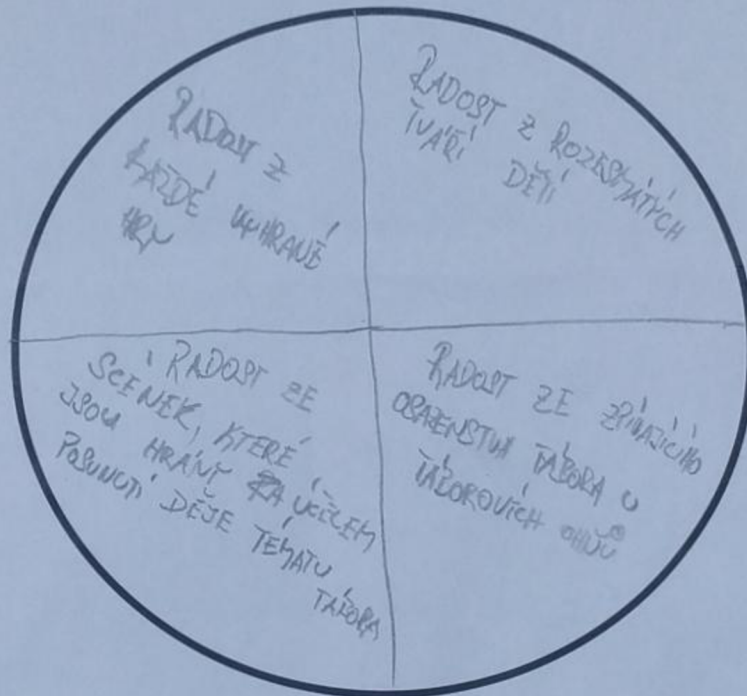 RADOST Z
KAŽDÉ VYHRANÉ
HRY
RADOST Z ROZESMÁTÝCH
TVÁŘÍ DĚTÍ
RADOST ZE
SCÉNEK, KTERÉ
JSOU HRÁNY ZA ÚČELEM
POSUNUTÍ DĚJE TÉMATU
TÁBORA
RADOST ZE ZPÍVAJÍCÍHO
OSAZENSTVA TÁBORA U
TÁBOROVÝCH OHŇŮ